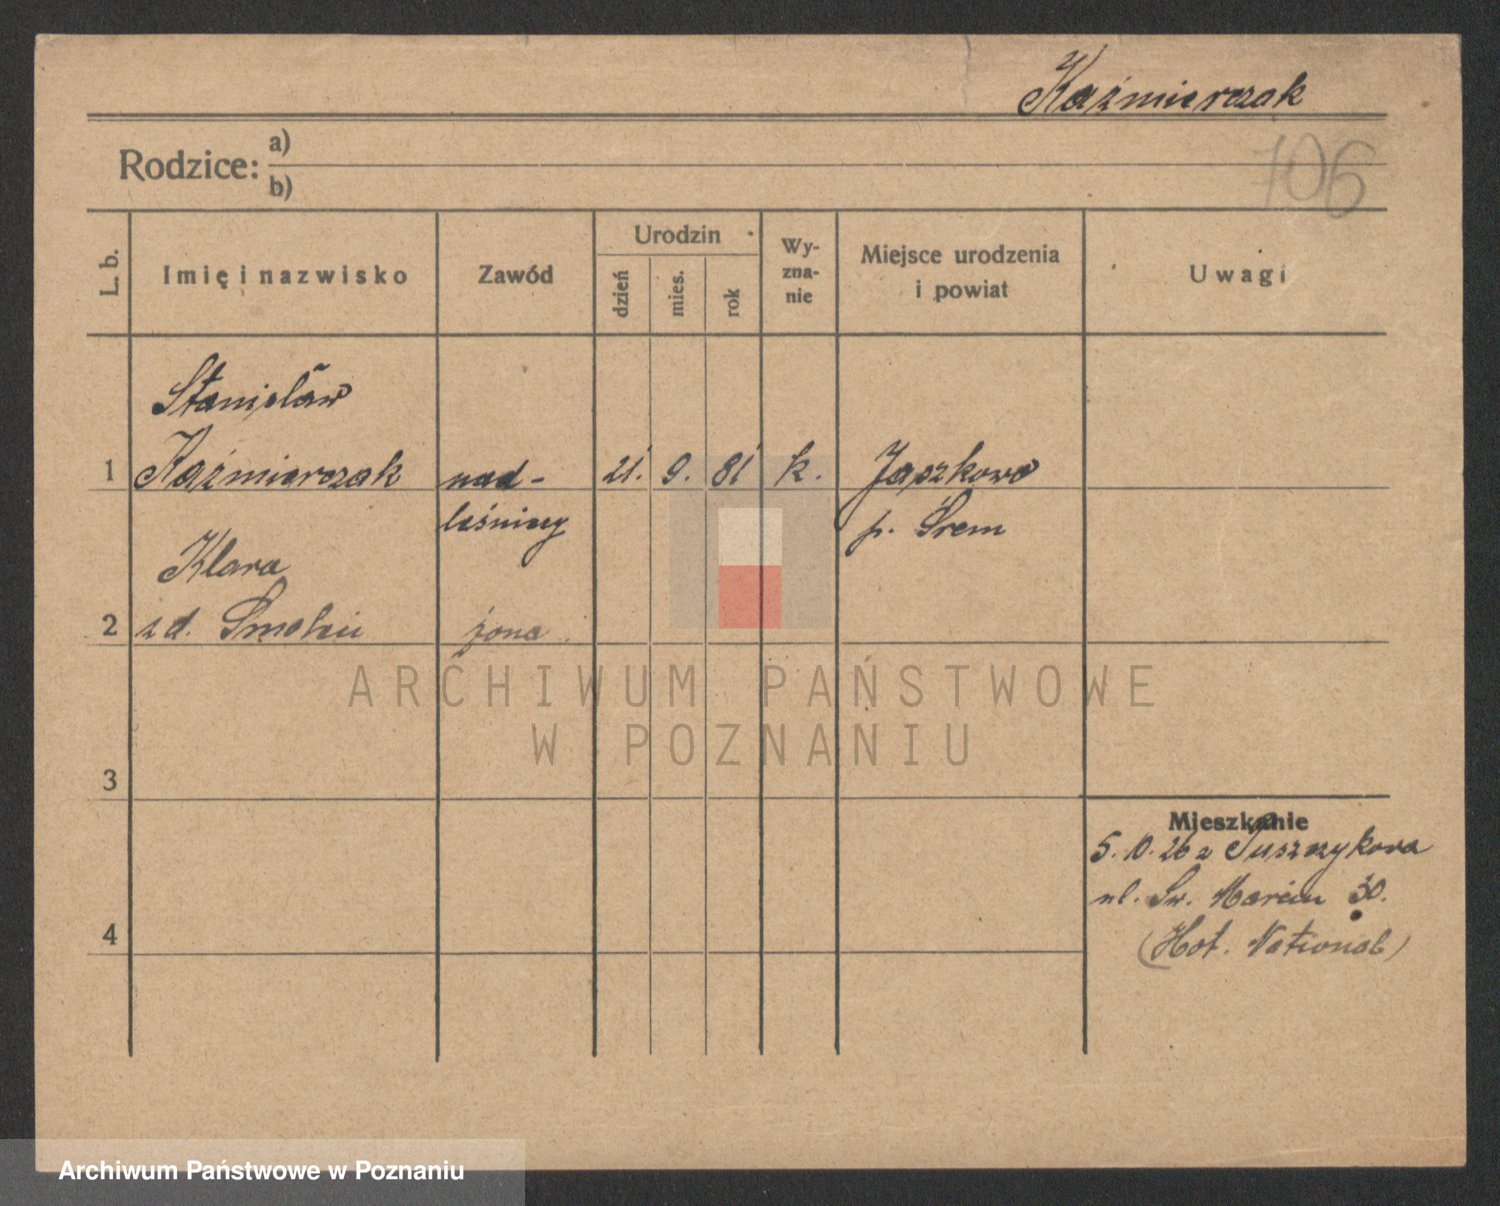 Kaźmierczak
106
Rodzice:
a)
b)
L. b.
Imię i nazwisko
Zawód
Urodzin
dzień
mies.
rok
Wy-
zna-
nie
Miejsce urodzenia
i powiat
Uwagi
Stanisław
1 Kaźmierczak nad- 21. 9. 81 k. Jaszkowo
leśniczy p. Śrem
Klara
2 z d. żona
3
4
Mieszkanie
5. 10. 26 z Tuszczykowa
ul. Św. Marcin 30.
(Hot. National)
ARCHIWUM PAŃSTWOWE
W POZNANIU
Archiwum Państwowe w Poznaniu